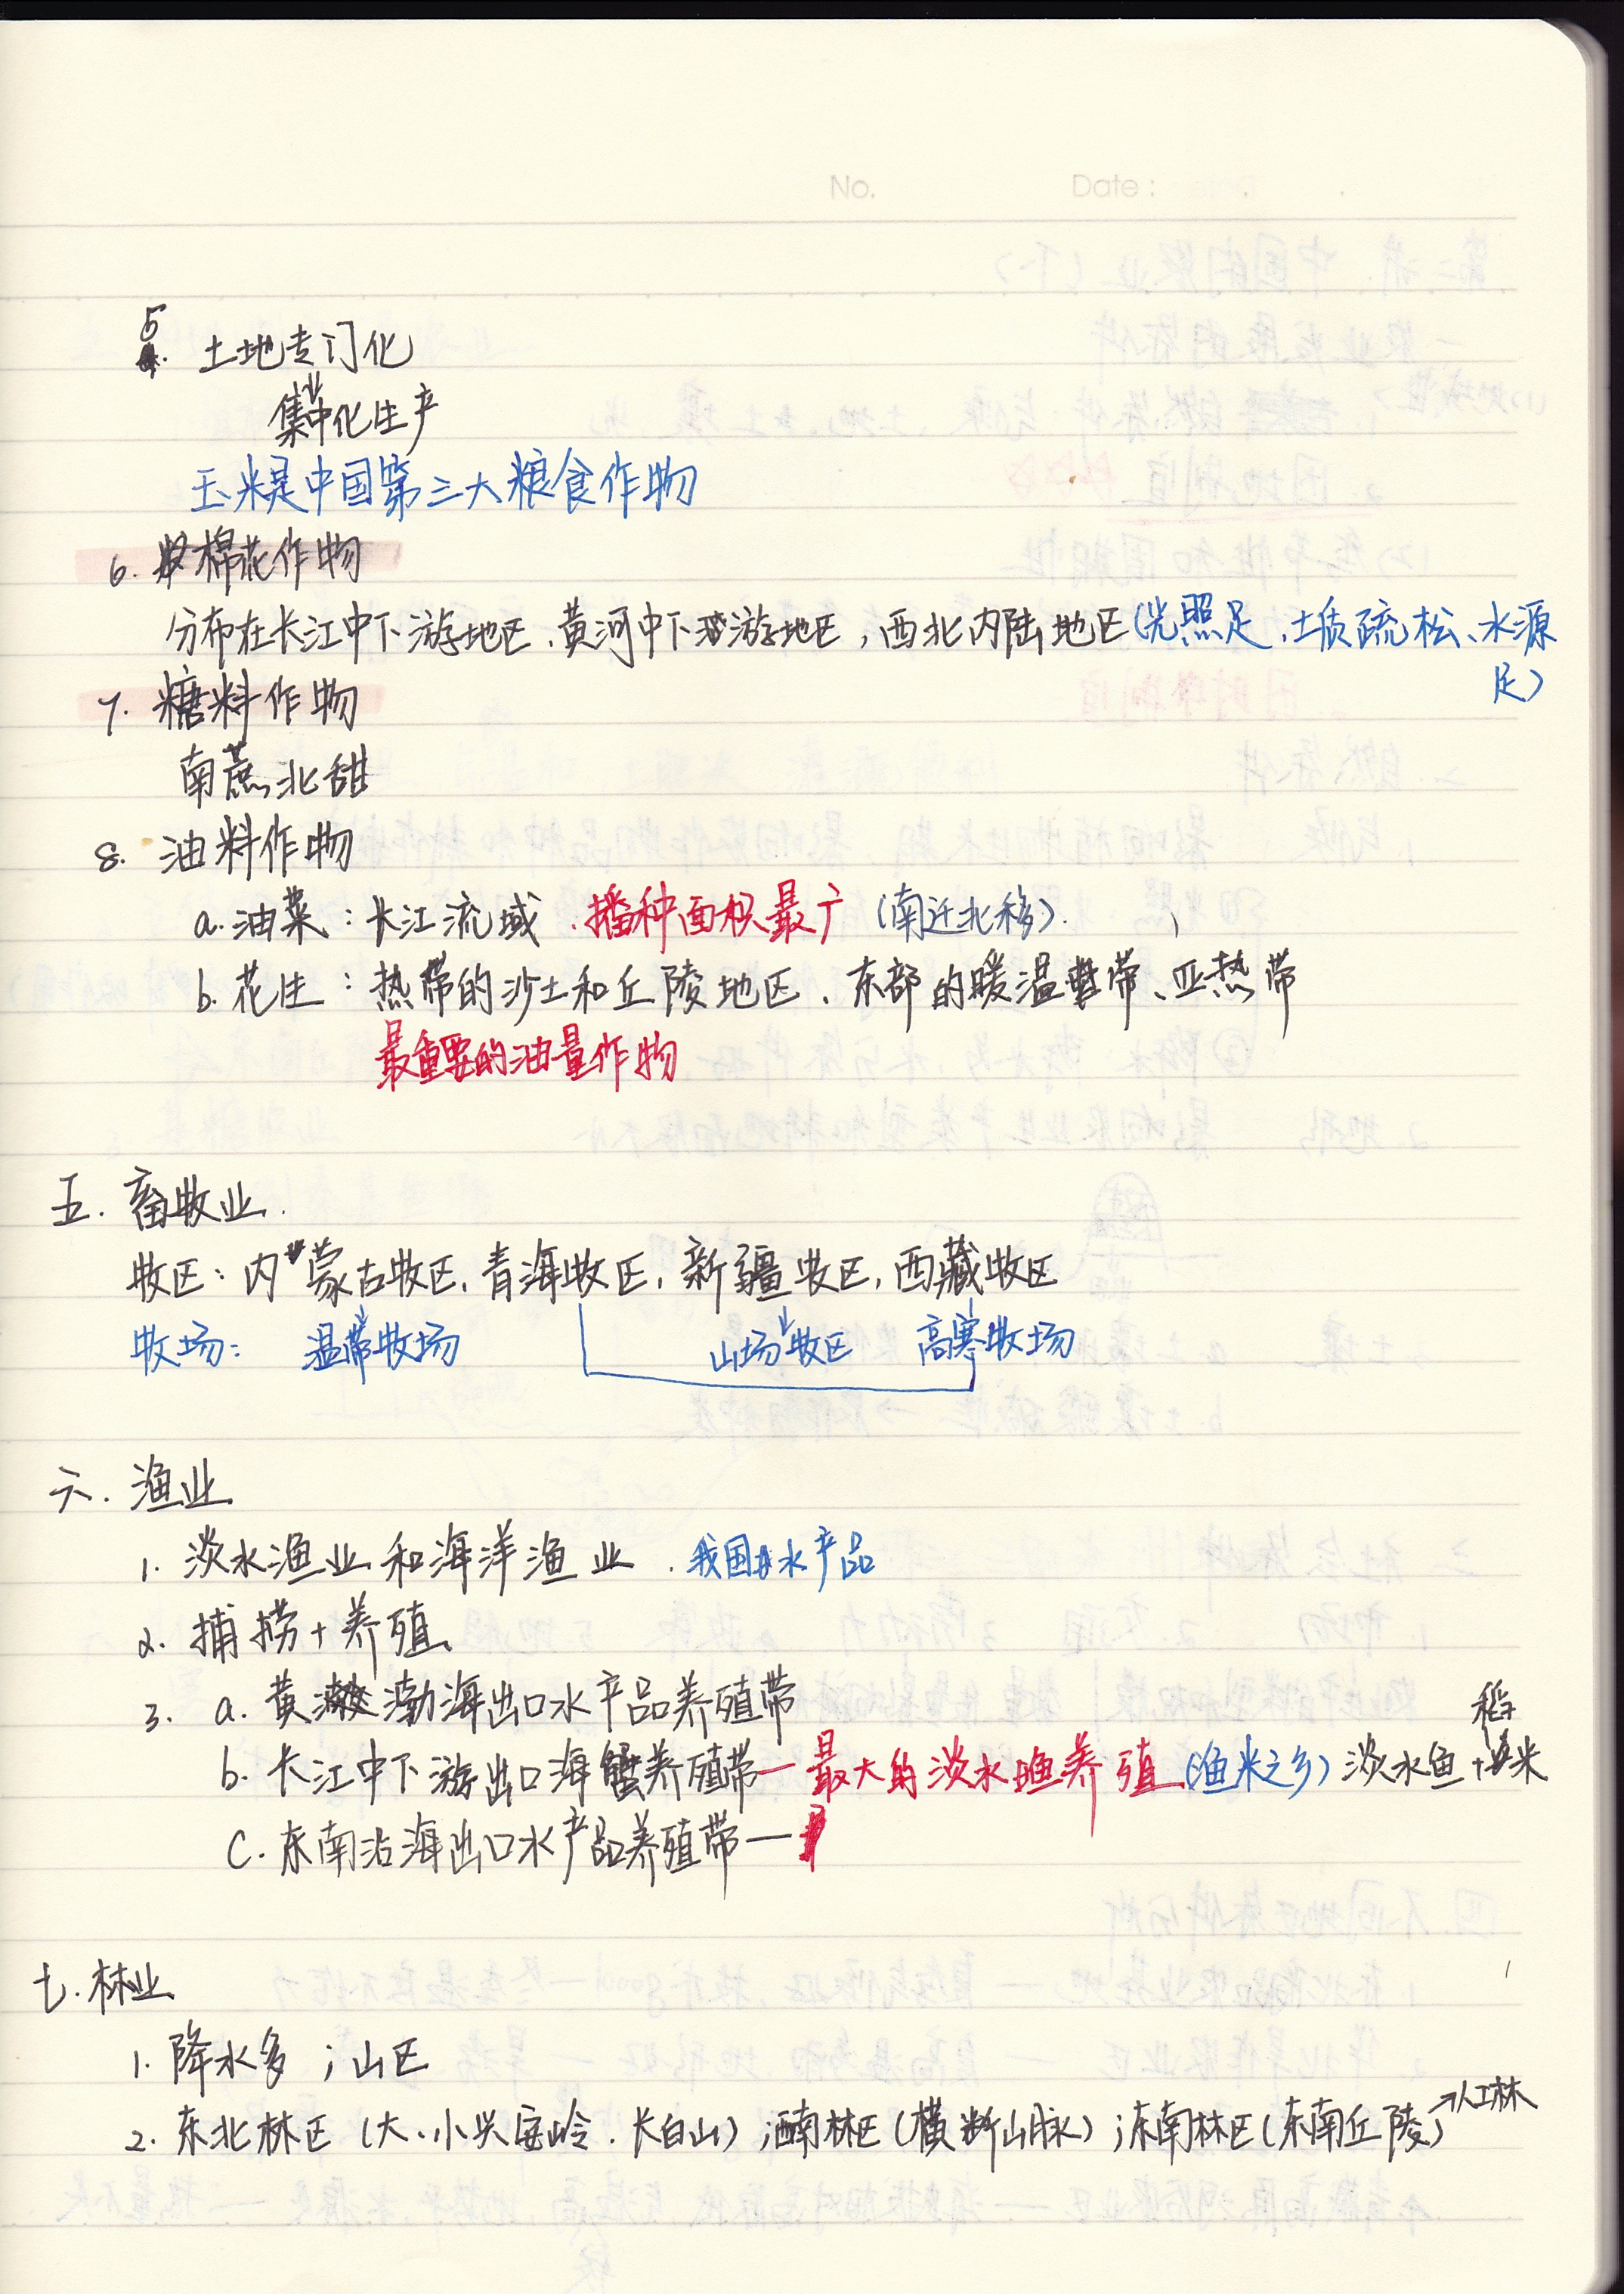 No. Date:
5. 土地专门化
集中化生产
玉米是中国第三大粮食作物
6. 棉花作物
分布在长江中下游地区、黄河中下游地区，西北内陆地区(光照足、土质疏松、水源
足)
7. 糖料作物
南蔗北甜
8. 油料作物
a. 油菜：长江流域、播种面积最广 (南迁北移).
b. 花生：热带的沙土和丘陵地区、东部的暖温带、亚热带
最重要的油量作物
五. 畜牧业.
牧区：内蒙古牧区，青海牧区，新疆牧区，西藏牧区
牧场：温带牧场 山场牧区 高寒牧场
六. 渔业
1. 淡水渔业和海洋渔业. 我国水产品
2. 捕捞+养殖
3. a. 黄渤海出口水产品养殖带
b. 长江中下游出口海蟹养殖带—最大的淡水渔养殖 (渔米之乡) 淡水鱼+稻米
C. 东南沿海出口水产品养殖带—
七. 林业
1. 降水多；山区
2. 东北林区 (大、小兴安岭、长白山)；西南林区 (横断山脉)；东南林区 (东南丘陵)→人工林